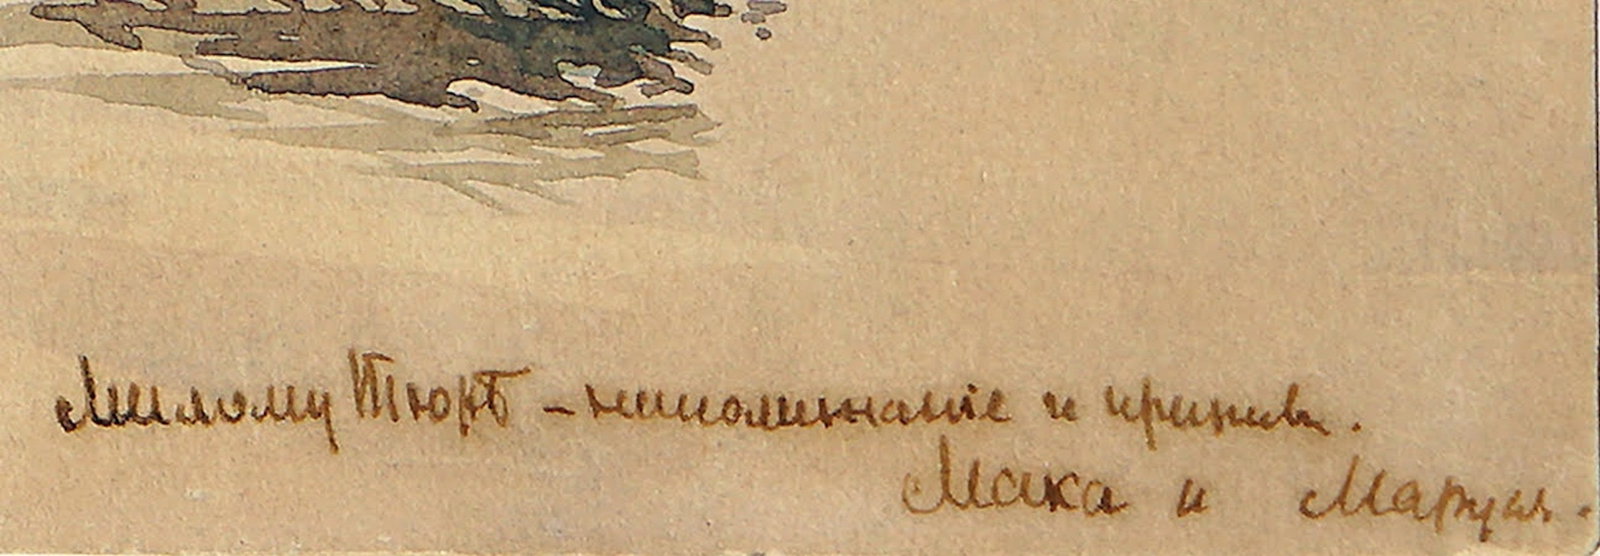 Милому Тюрѣ – напоминаніе и призывъ.
Мака и Маруся.